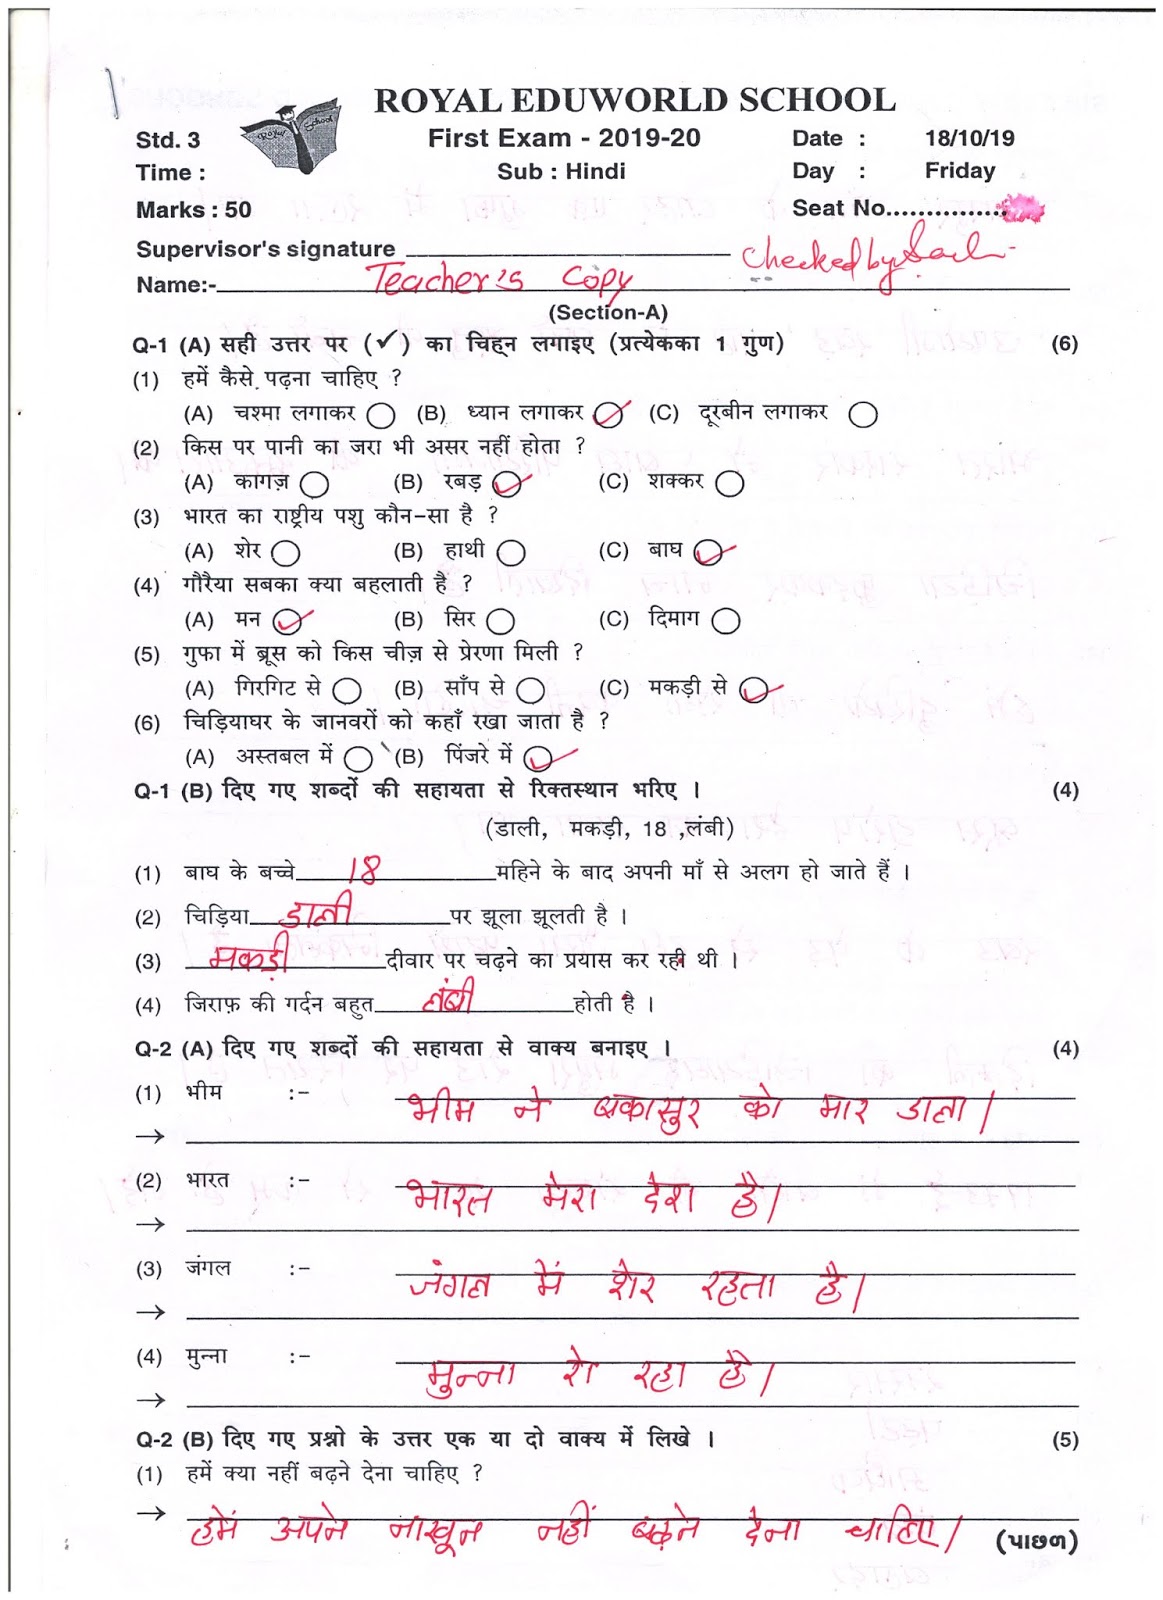 ROYAL EDUWORLD SCHOOL
Royal School
Std. 3 First Exam - 2019-20 Date : 18/10/19
Time : Sub : Hindi Day : Friday
Marks : 50 Seat No...............
Supervisor's signature ________ Checked by
Name:- Teacher's Copy
(Section-A)
Q-1 (A) सही उत्तर पर (✓) का चिह्न लगाइए (प्रत्येकका 1 गुण) (6)
(1) हमें कैसे पढ़ना चाहिए ?
(A) चश्मा लगाकर ◯ (B) ध्यान लगाकर ◯✓ (C) दूरबीन लगाकर ◯
(2) किस पर पानी का जरा भी असर नहीं होता ?
(A) कागज़ ◯ (B) रबड़ ◯✓ (C) शक्कर ◯
(3) भारत का राष्ट्रीय पशु कौन-सा है ?
(A) शेर ◯ (B) हाथी ◯ (C) बाघ ◯✓
(4) गौरैया सबका क्या बहलाती है ?
(A) मन ◯✓ (B) सिर ◯ (C) दिमाग ◯
(5) गुफा में ब्रूस को किस चीज़ से प्रेरणा मिली ?
(A) गिरगिट से ◯ (B) साँप से ◯ (C) मकड़ी से ◯✓
(6) चिड़ियाघर के जानवरों को कहाँ रखा जाता है ?
(A) अस्तबल में ◯ (B) पिंजरे में ◯✓
Q-1 (B) दिए गए शब्दों की सहायता से रिक्तस्थान भरिए । (4)
(डाली, मकड़ी, 18 ,लंबी)
(1) बाघ के बच्चे 18 महिने के बाद अपनी माँ से अलग हो जाते हैं ।
(2) चिड़िया डाली पर झूला झूलती है ।
(3) मकड़ी दीवार पर चढ़ने का प्रयास कर रही थी ।
(4) जिराफ़ की गर्दन बहुत लंबी होती है ।
Q-2 (A) दिए गए शब्दों की सहायता से वाक्य बनाइए । (4)
(1) भीम :- भीम ने बकासुर को मार डाला।
→
(2) भारत :- भारत मेरा देश है।
→
(3) जंगल :- जंगल में शेर रहता है।
→
(4) मुन्ना :- मुन्ना रो रहा है।
→
Q-2 (B) दिए गए प्रश्नो के उत्तर एक या दो वाक्य में लिखे । (5)
(1) हमें क्या नहीं बढ़ने देना चाहिए ?
→ हमें अपने नाखून नहीं बढ़ने देना चाहिए।
(પાછળ)